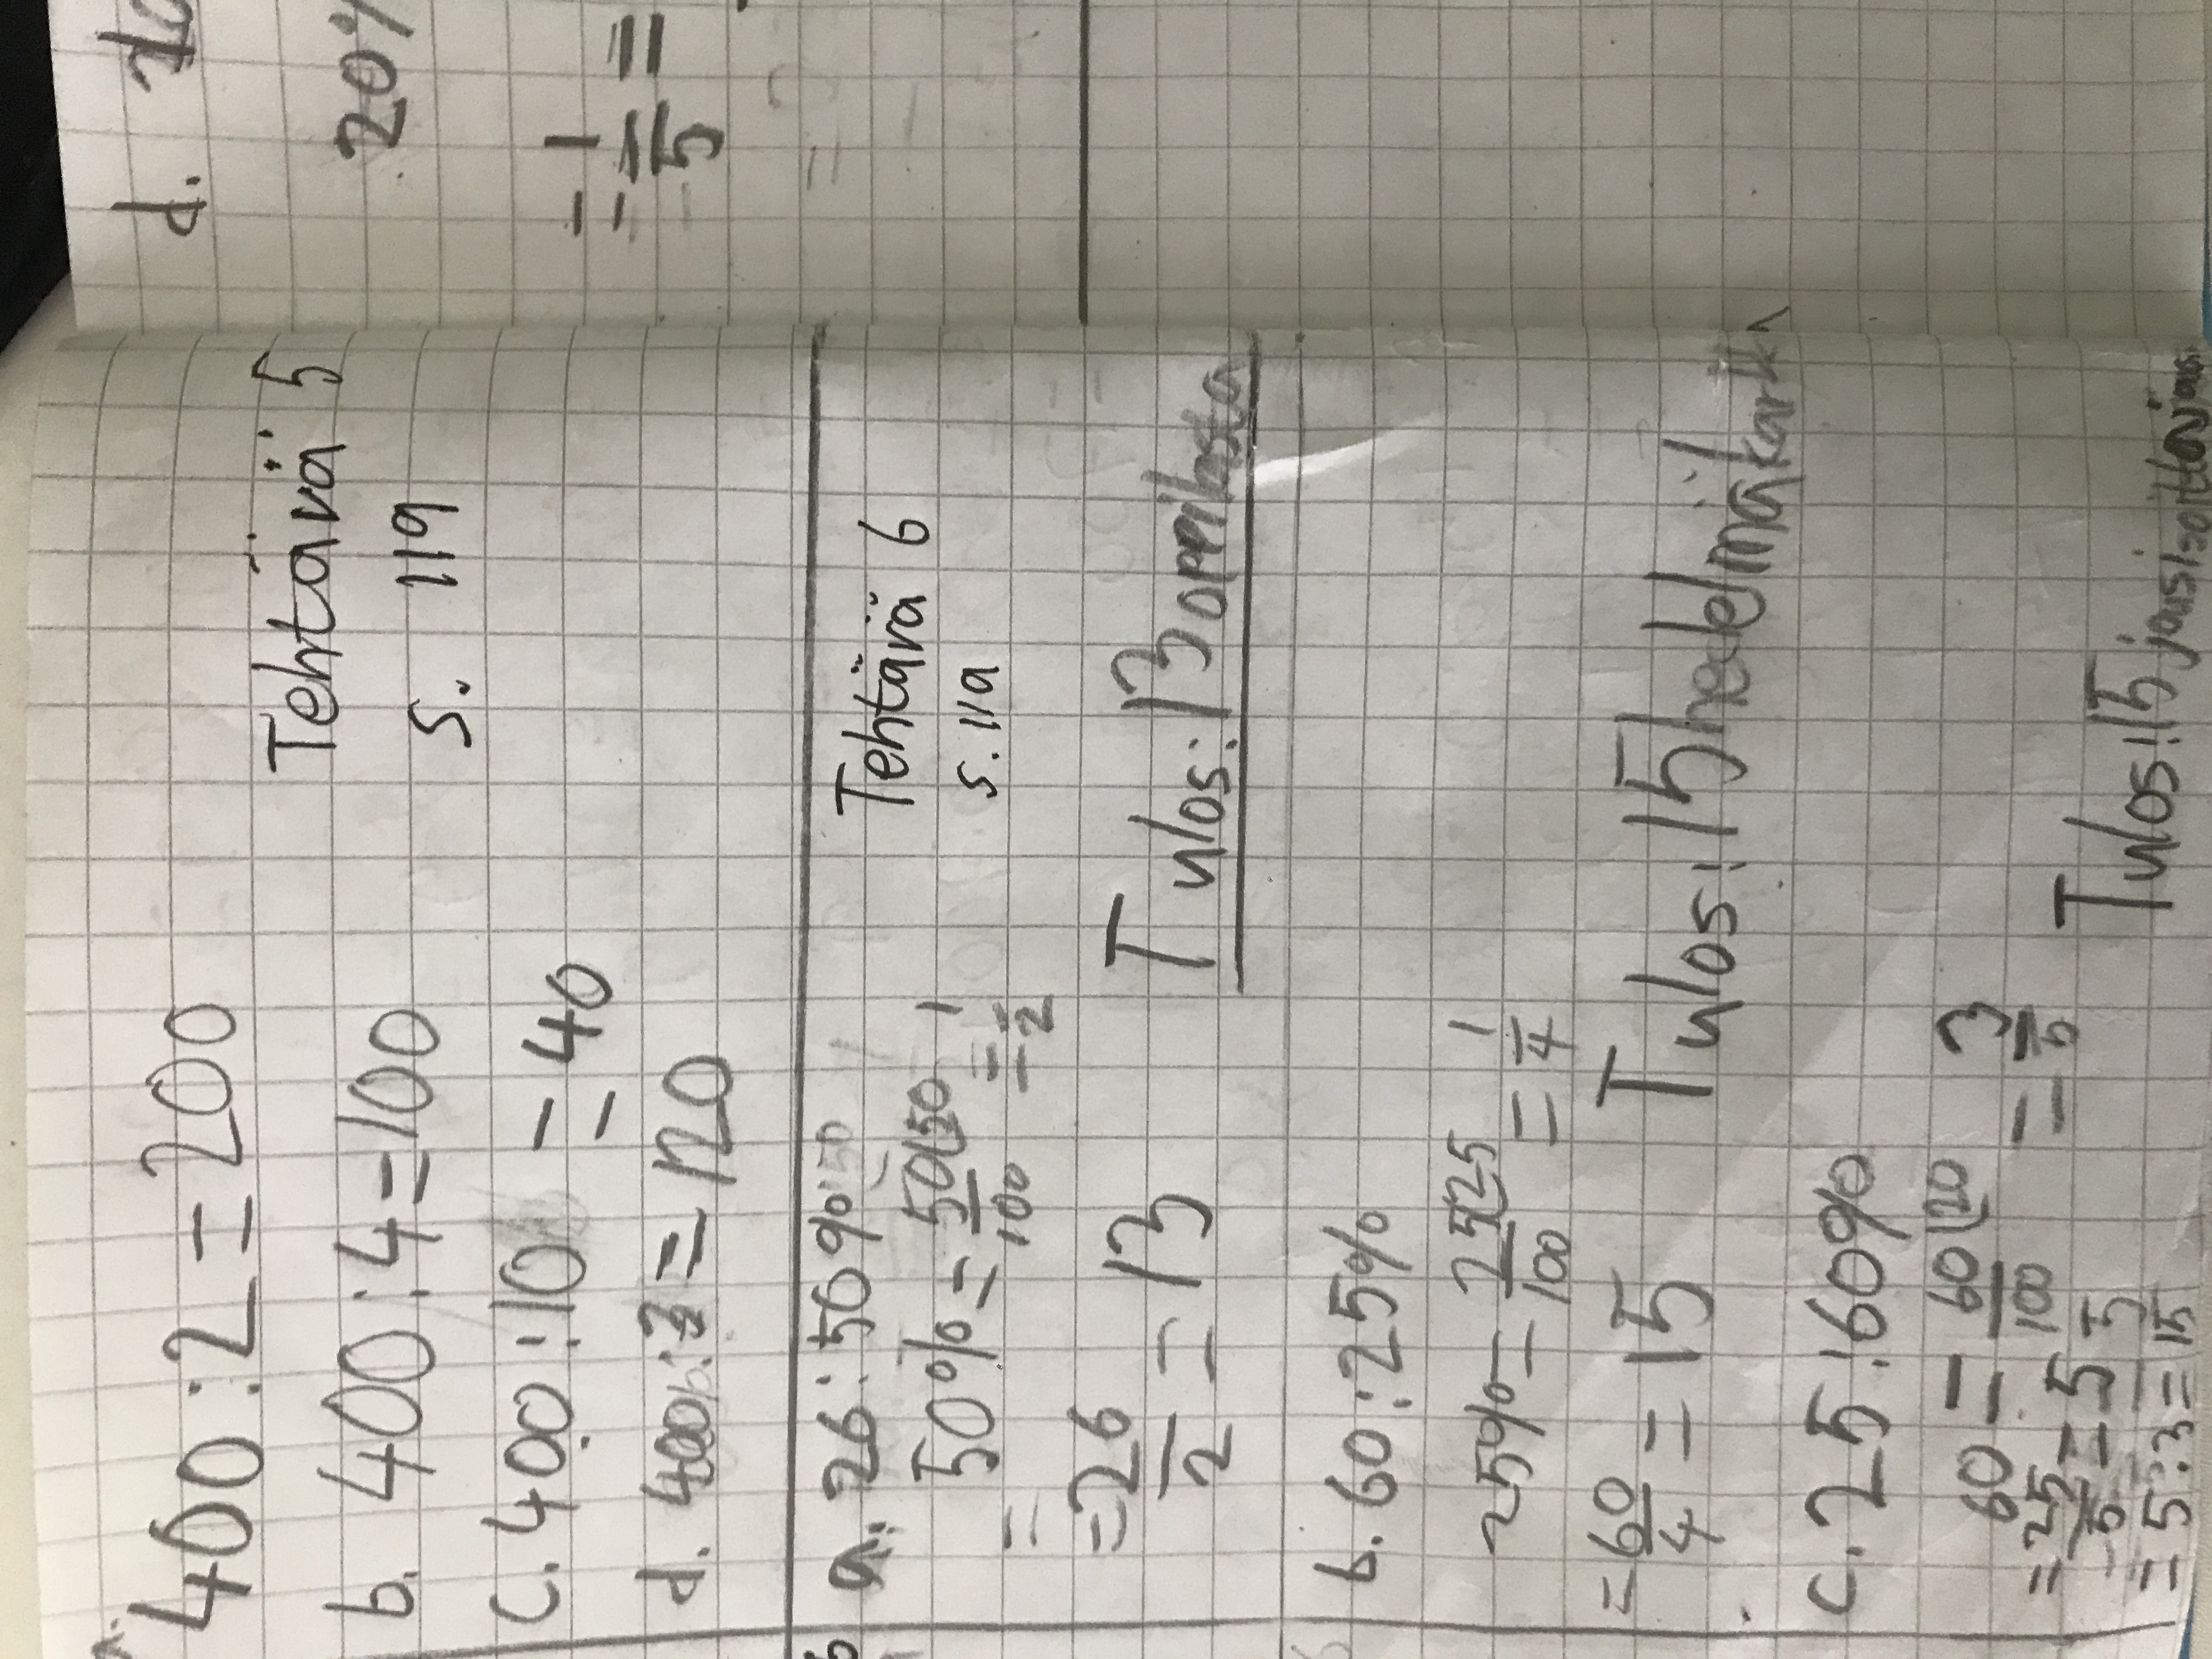 a.
400 : 2 = 200
Tehtävä 5
s. 119
b. 400 : 4 = 100
c. 400 : 10 = 40
d. 400 = 120
Tehtävä 6
s. 119
a. 26 : 50%
50% = 50(50 / 100 = 1/2
=
= 26/2 = 13
Tulos: 13 oppilasta
b. 60 : 25%
25% = 25(25 / 100 = 1/4
= 60/4 = 15
Tulos: 15 hedelmäkarkk
c. 25 : 60%
60 = 60(20 / 100 = 3/5
= 25/5 = 5
= 5 · 3 = 15
Tulos: 15
d.
20%
= 1/5 =